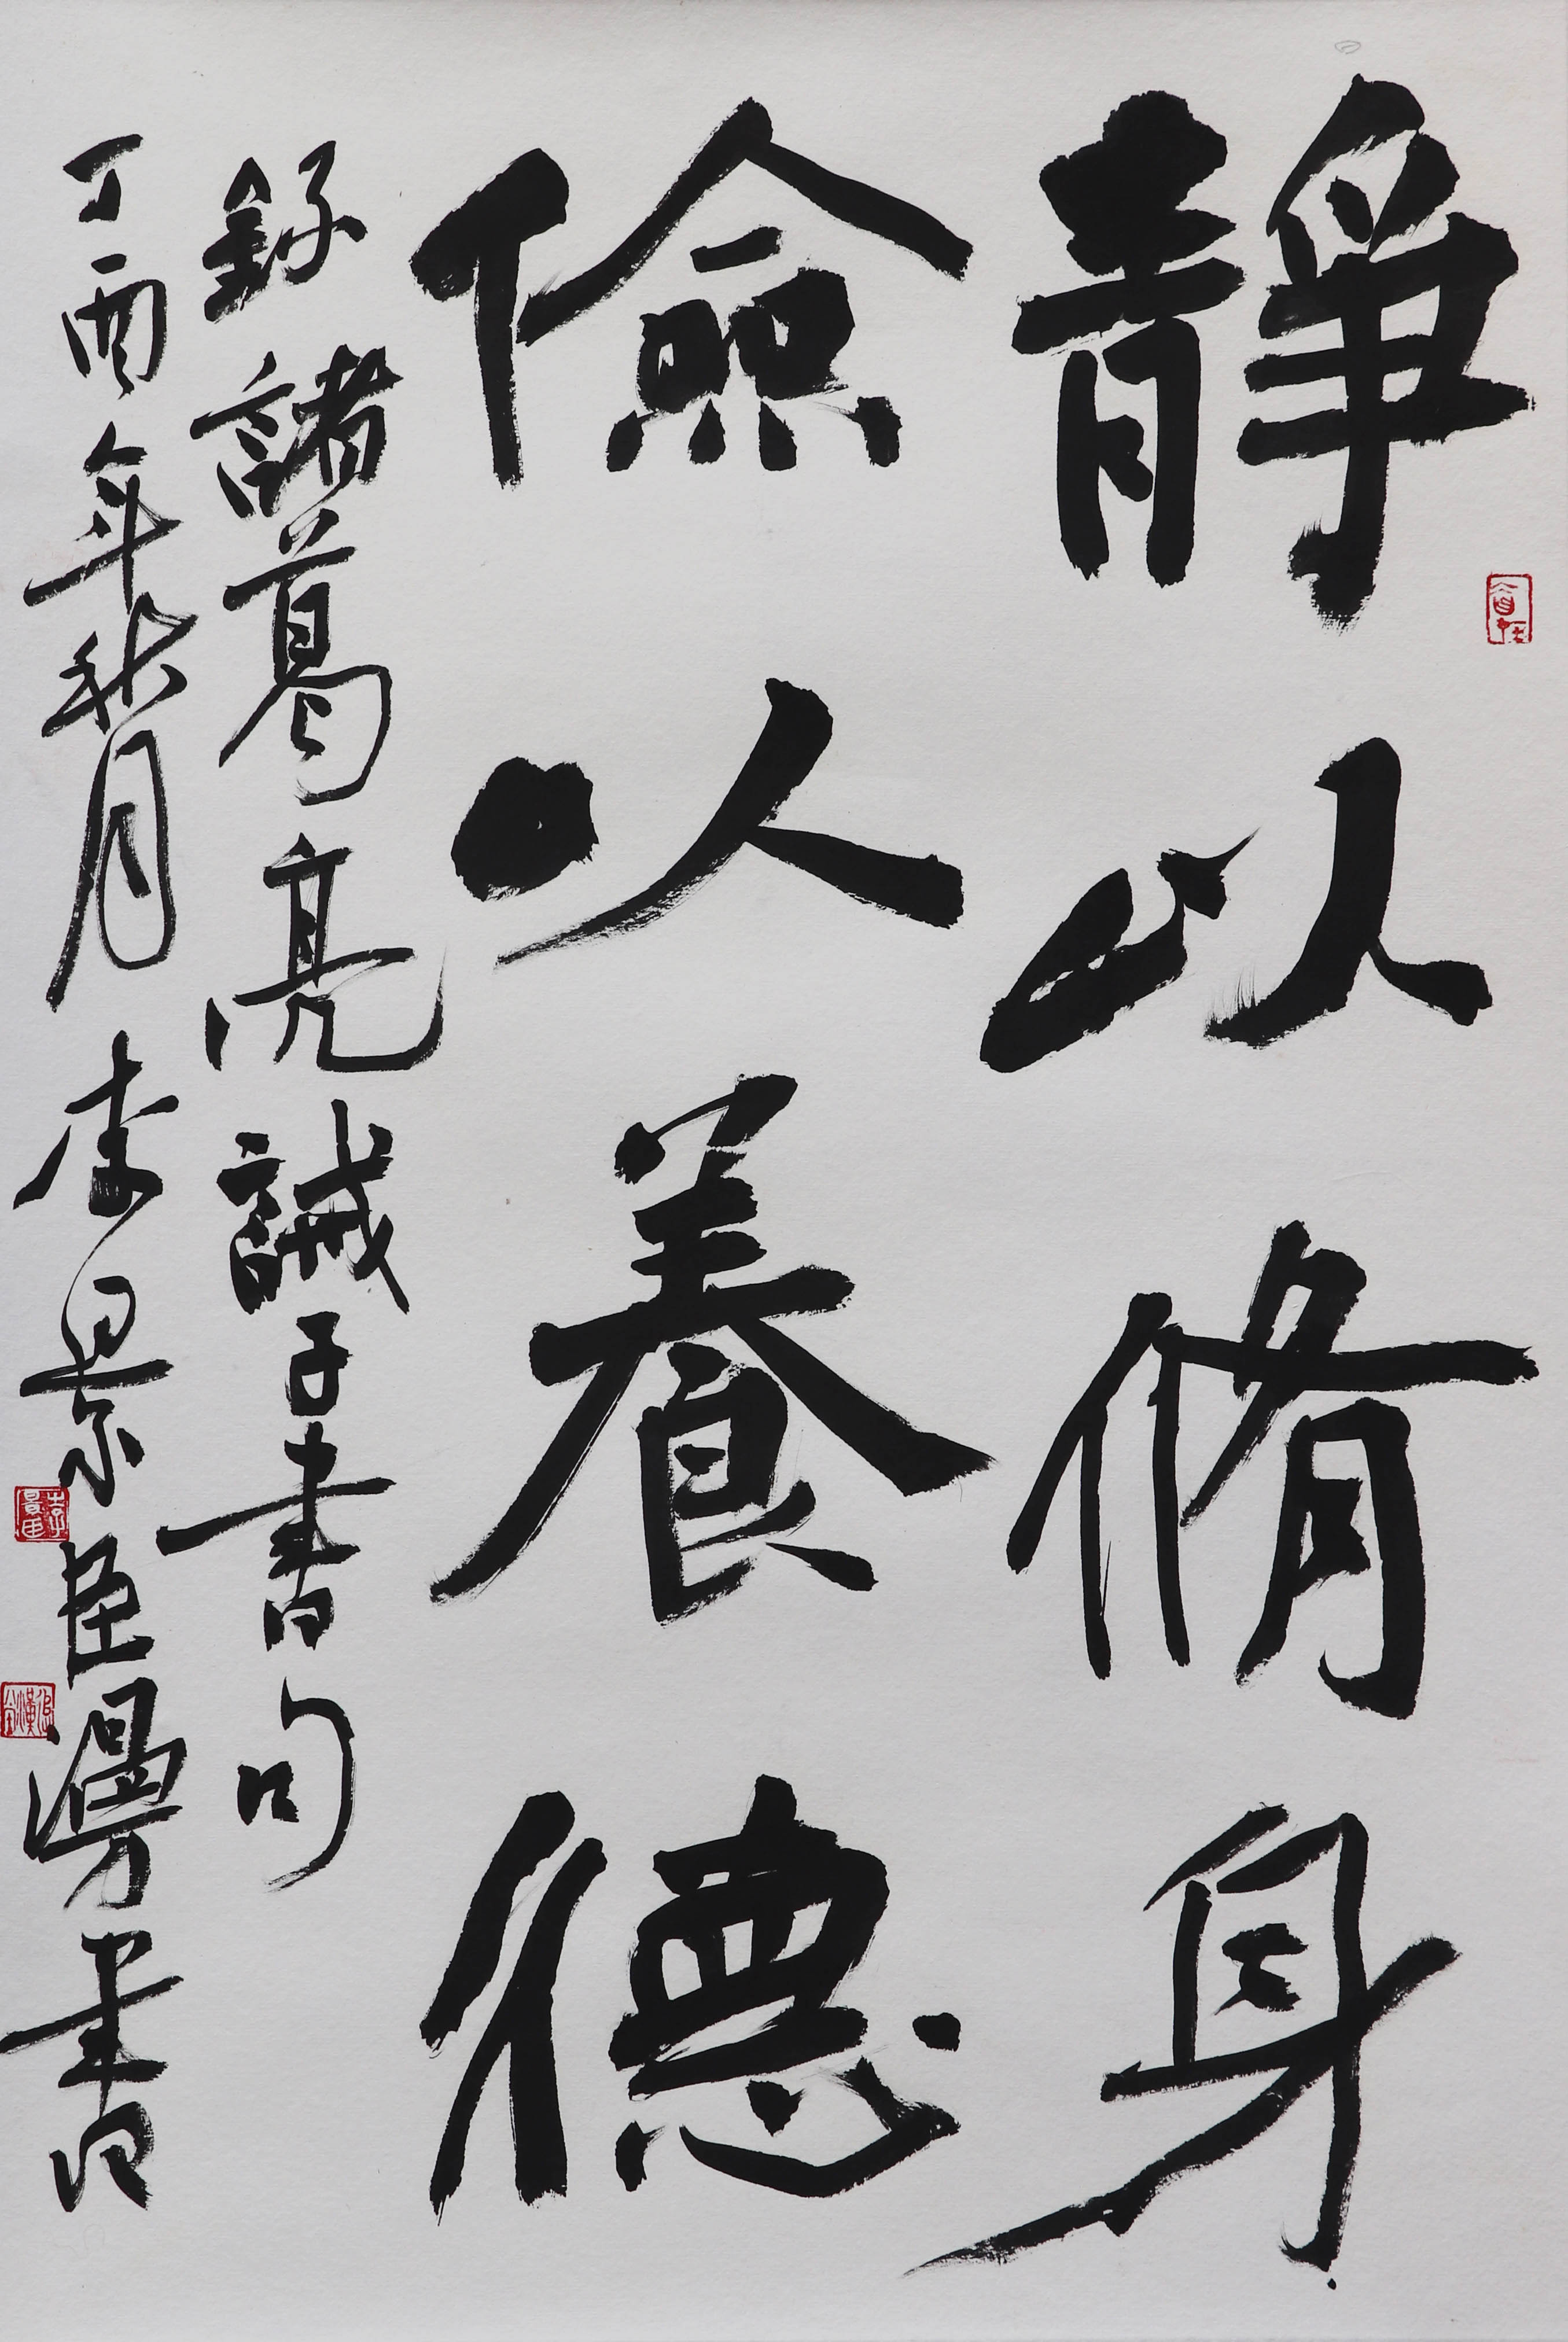 靜以脩身
儉以養德
錄諸葛亮誡子書句
丁酉年秋月李景臣漫書